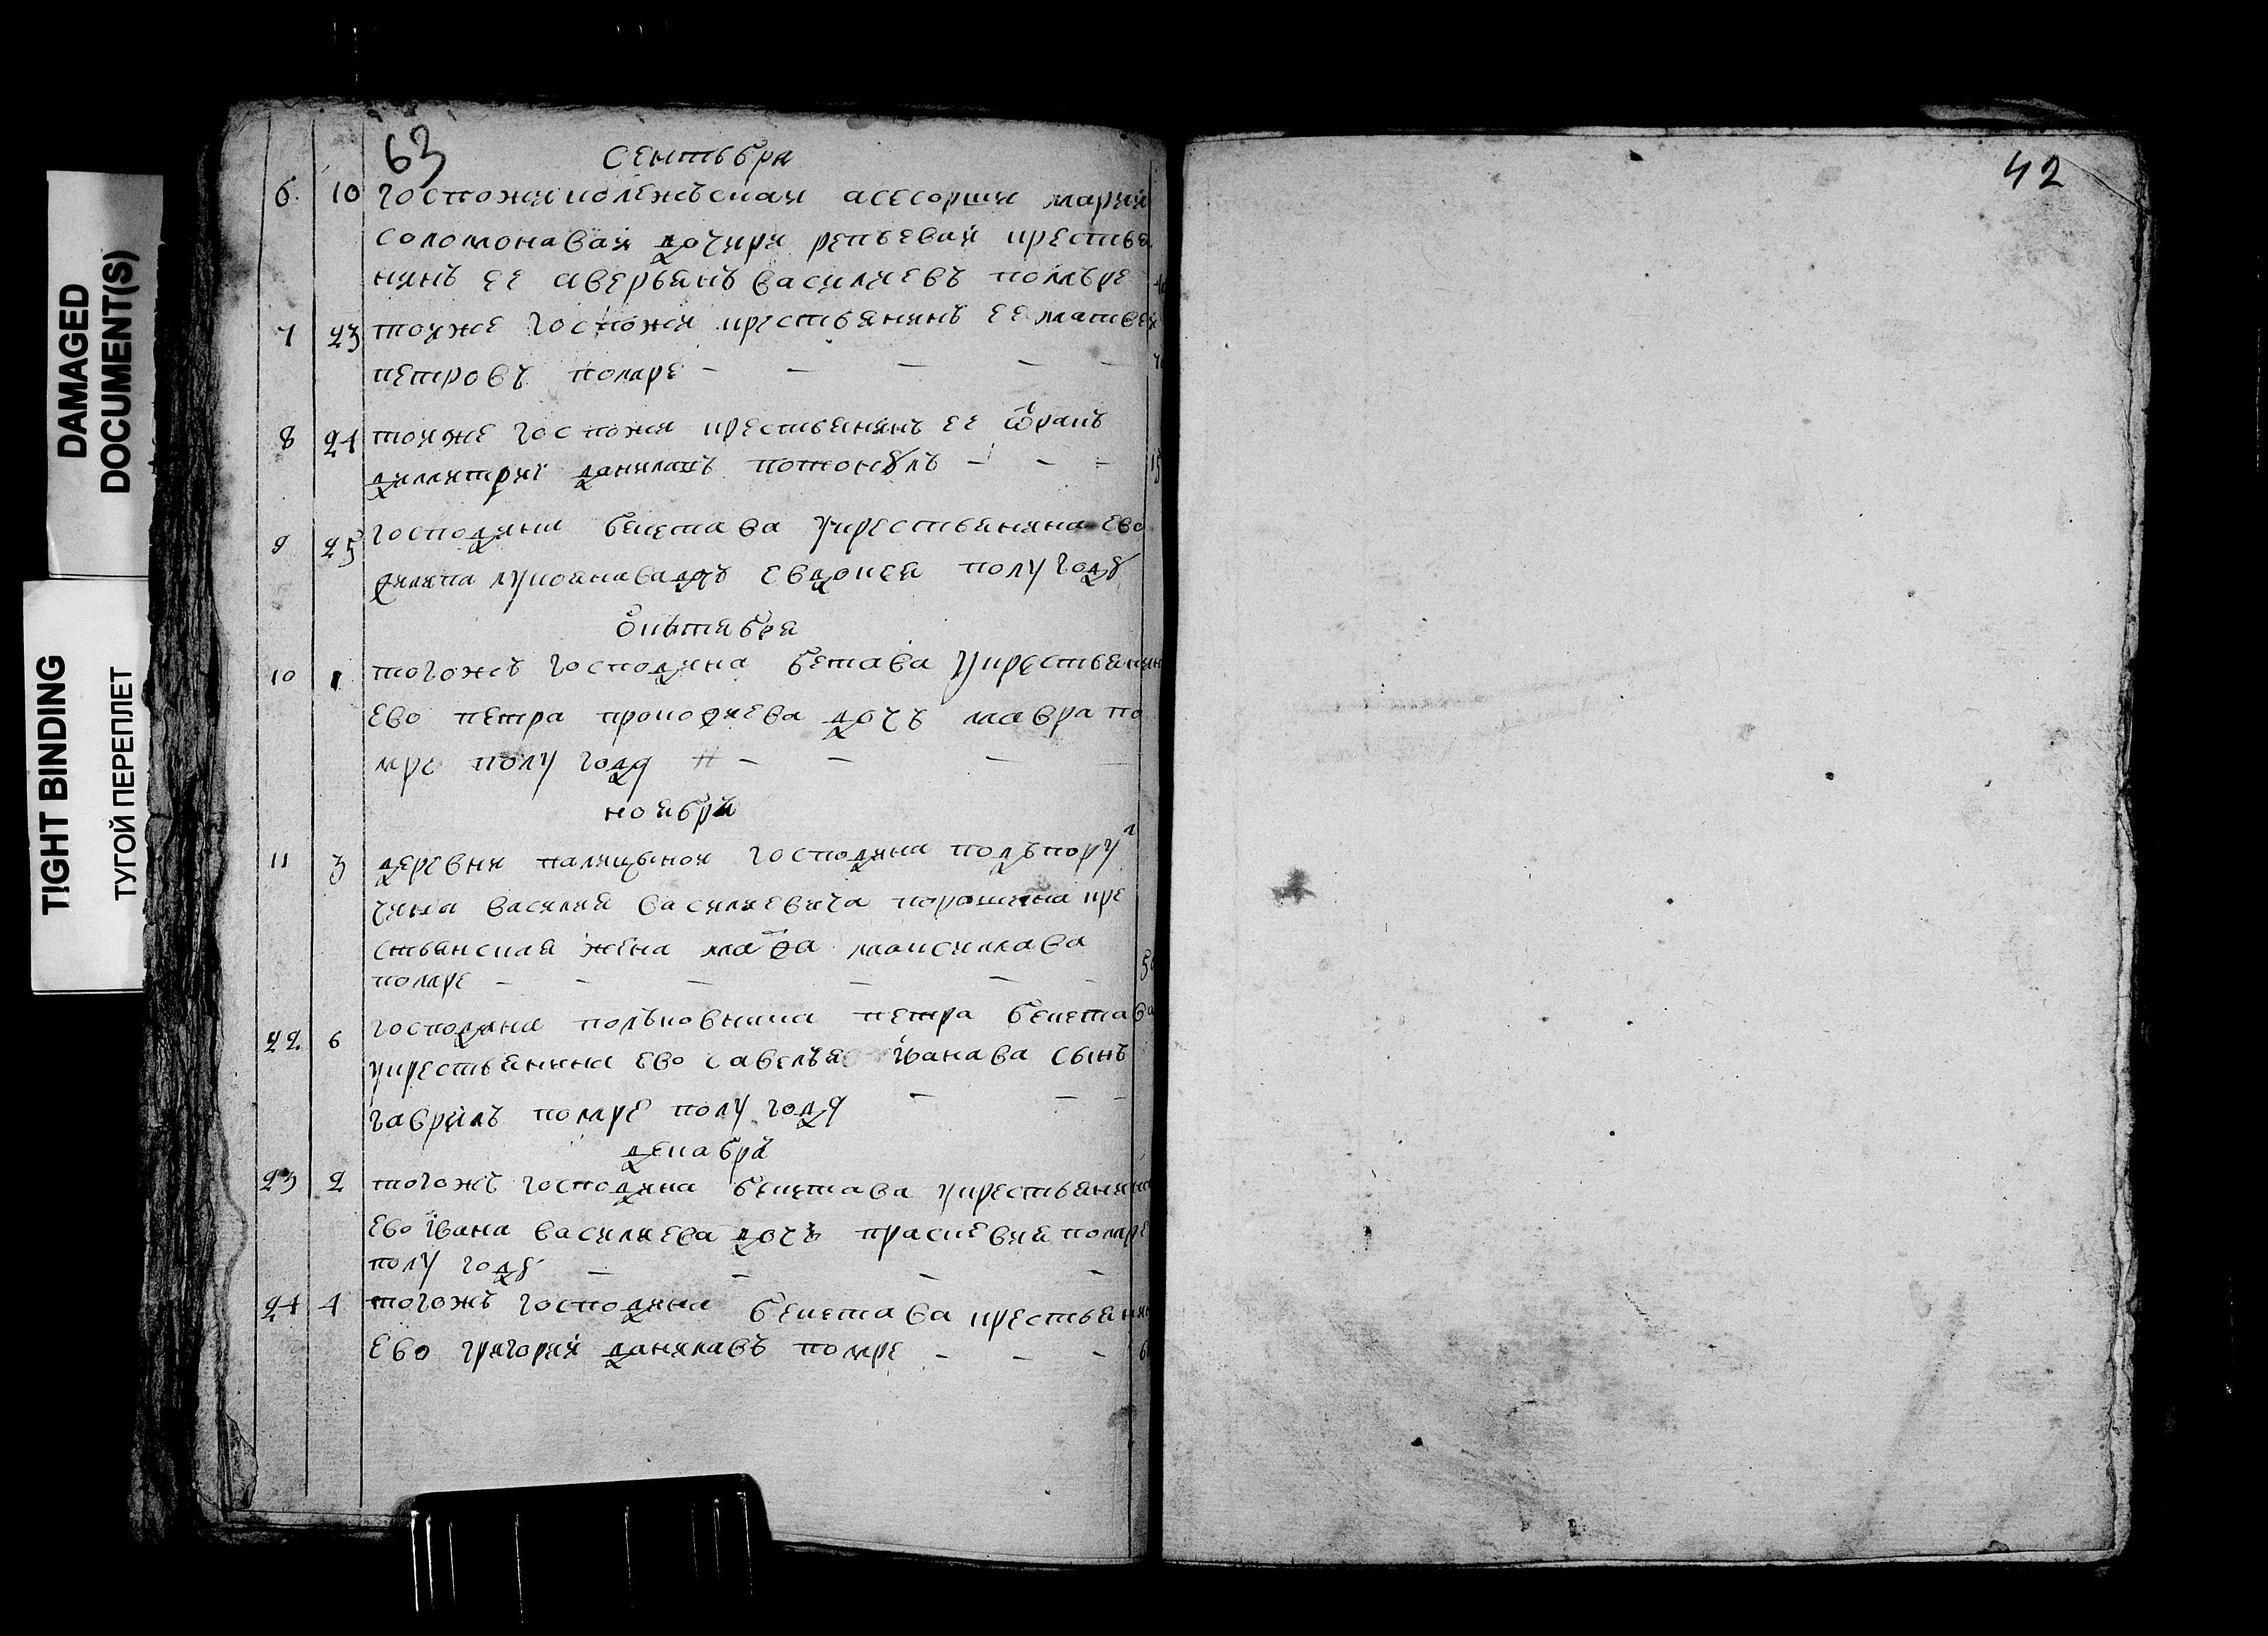 DAMAGED
DOCUMENT(S)
TIGHT BINDING
ТУГОЙ ПЕРЕПЛЕТ
63
42
сентября
6 10 госпожи колежъскай асесорши марии
соломонавай дочири репьевай крестья
нинъ ее аверьянъ василиевъ помъре
7 23 тояже госпожи крестьянинъ ее матвей
петровъ помре
8 24 тояже госпожи крестьянинъ ее
димитрий потонулъ 15
9 25 господина бекетава укрестьянина ево
филипа лукоянава дочь евдокея полугоду
октября
10 1 тогожъ господина бетава укрестьянин
ево петра прокофиева дочъ мавра по
мре полу году
ноября
11 3 деревни господина подъпору
чика василия василиевича порошина кре
стьянская жена мафа максимава
помре 5
22 6 господина полъковника петра бекетава
укрестьянина ево савелья іванава сынъ
гаврилъ помре полу году
декабря
23 2 тогожъ господина бекетава укрестьянина
ево івана василиева дочъ прасковия помре
полу году
24 4 тогожъ господина бекетава крестьянин
ево григорий данилавъ помре 6